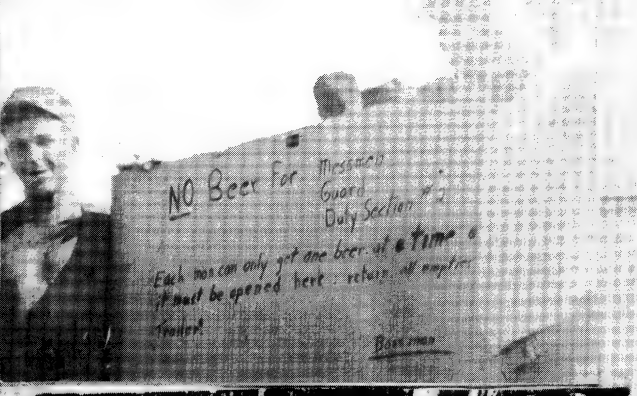 NO Beer For Messmen
Guard
Duty Section # 2
Each man can only get one beer at a time &
it must be opened here : return all empties